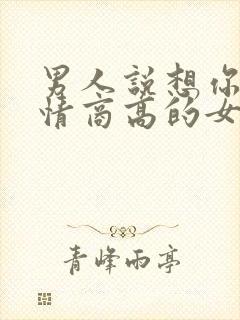 男人説想你
情商高的女
青峰雨亭